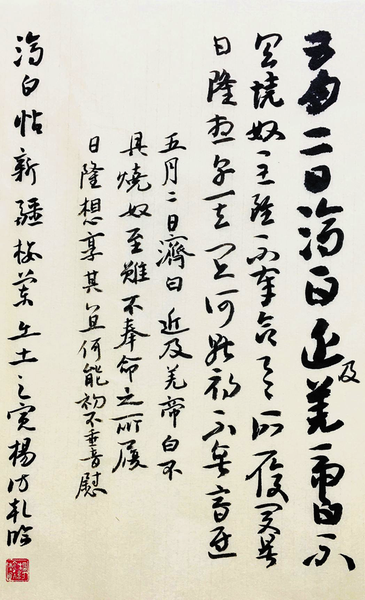 五月二日济白近及羌帝白不
具燒奴至难不奉命之所履
日隆想享其宜何能初不垂音慰
五月二日濟白近及羌帝白不
具燒奴至難不奉命之所履
日隆想享其宜何能初不垂音慰
济白帖新疆楼蘭出土之寶楊